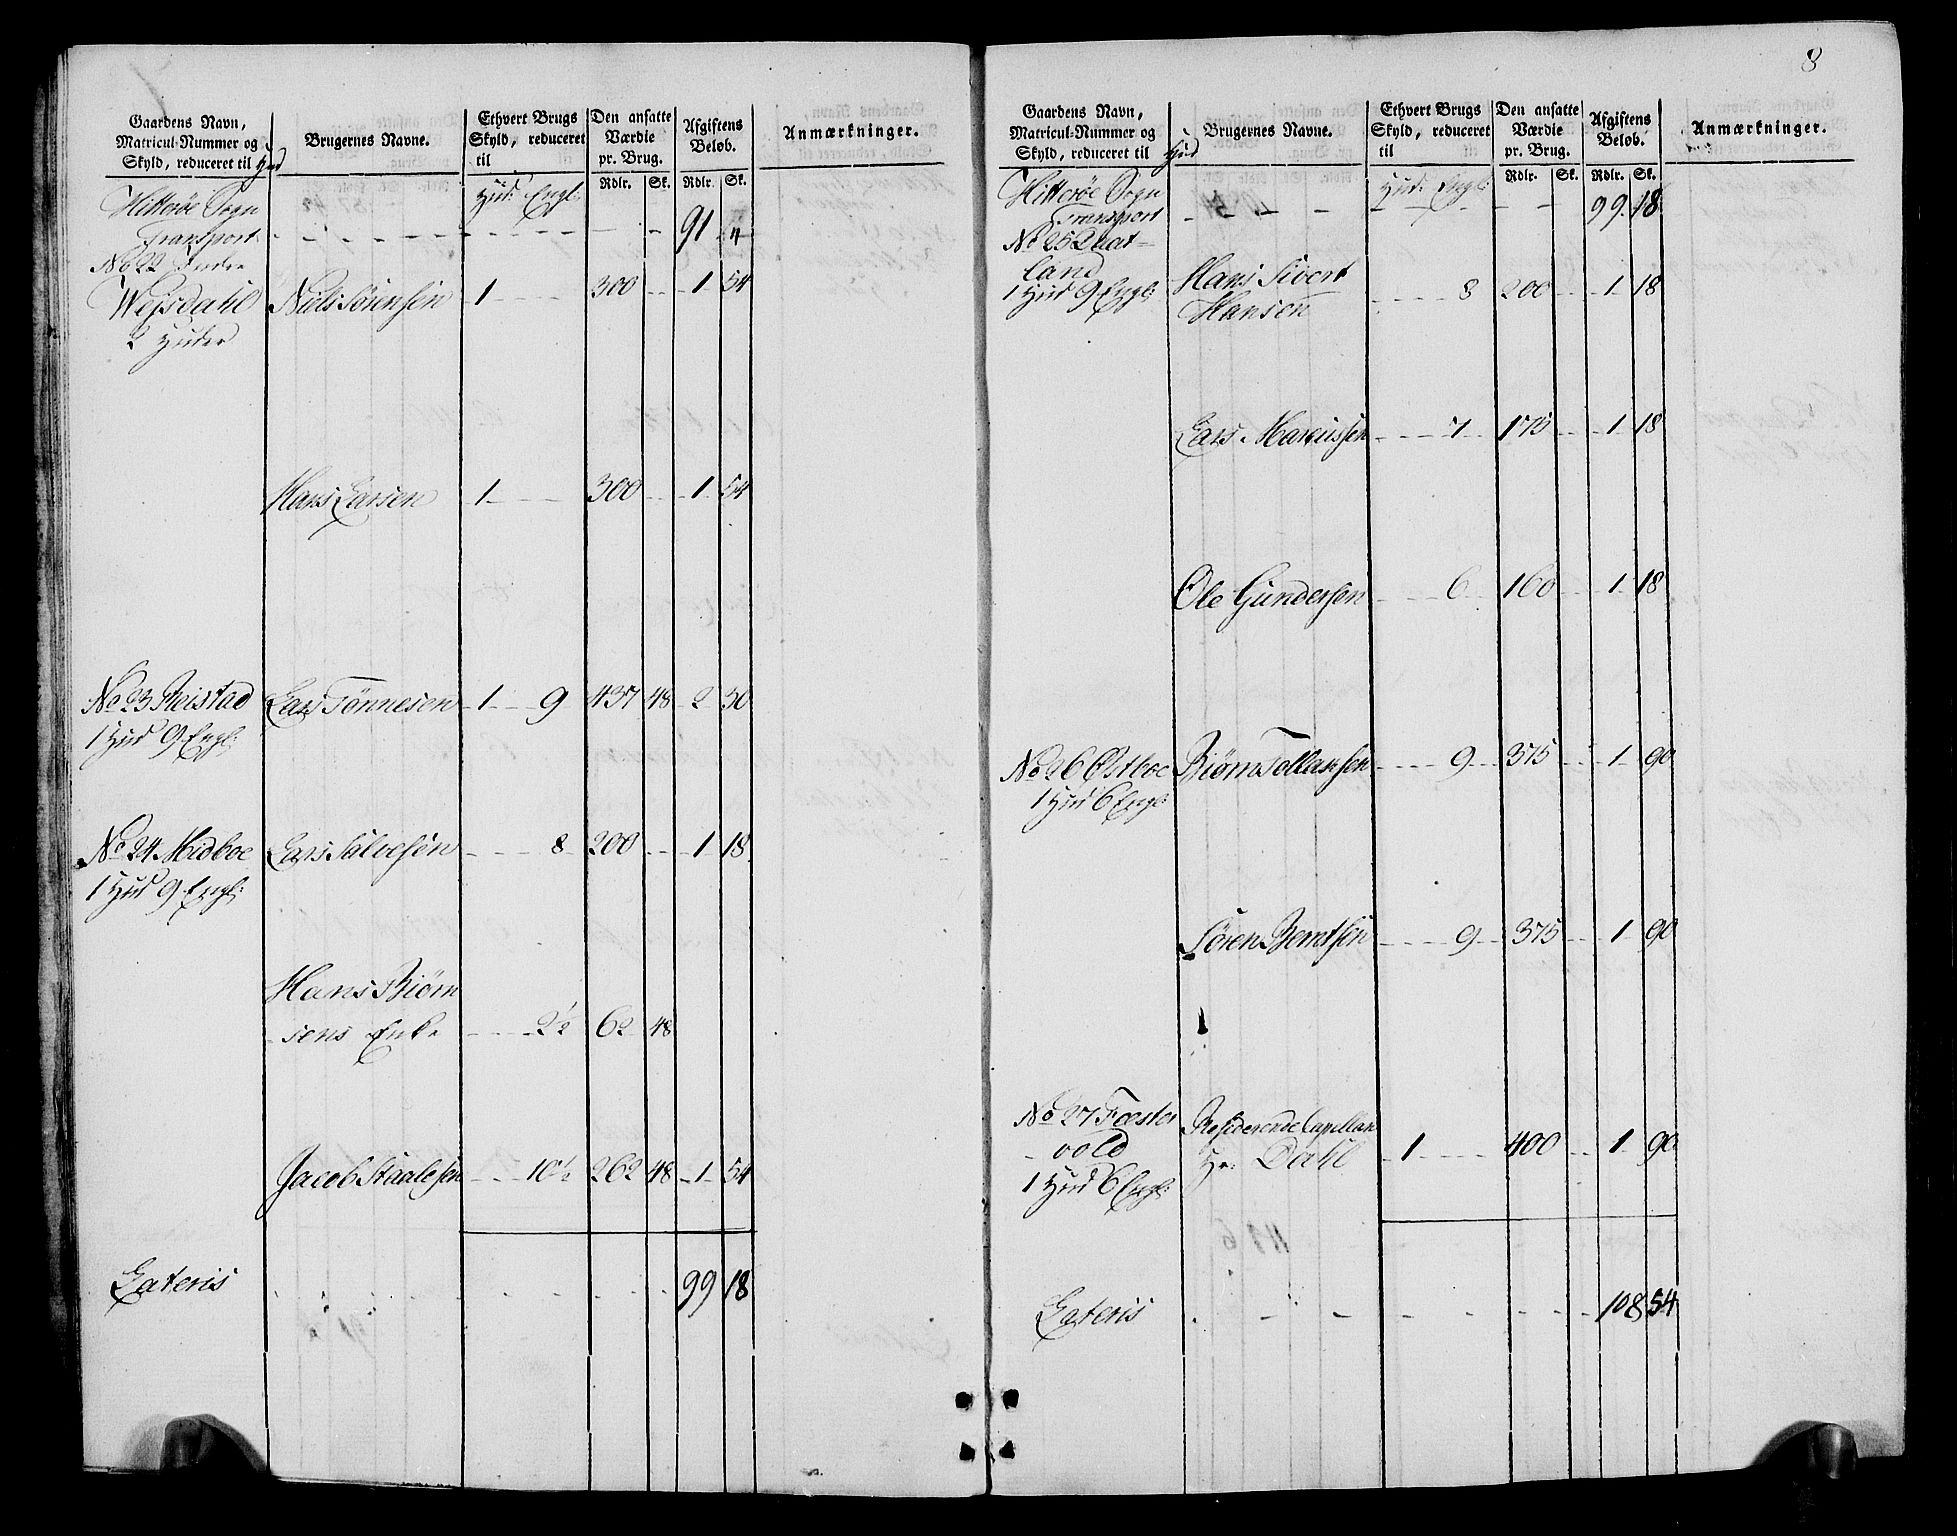 Gaardens Navn, Matricul-Nummer og Skyld, reduceret til Hud
Brugernes Navne.
Ethvert Brugs Skyld, reduceret til
Den ansatte Værdie pr. Brug.
Afgiftens Beløb.
Anmærkninger.
Rdlr. Sk. Rdlr. Sk.
Hitterøe Sogn Hud: Engl:
Transport 91 4
No 22 Indre
Wejsdahl Niels Sørensen 1 300 1 54
2 Huder
Hans Larsen 1 300 1 54
No 23 Reistad Lars Tønnesen 1 9 437 48 2 30
1 Hud 9 Engl:
No 24 Midboe Lars Salvesen 8 200 1 18
1 Hud 9 Engl:
Hans Biørn
sens Enke 2½ 62 48
Jacob Staalesen 10½ 262 48 1 54
Lateris 99 18
8
Gaardens Navn, Matricul-Nummer og Skyld, reduceret til Hud
Brugernes Navne.
Ethvert Brugs Skyld, reduceret til
Den ansatte Værdie pr. Brug.
Afgiftens Beløb.
Anmærkninger.
Rdlr. Sk. Rdlr. Sk.
Hitterøe Sogn Hud: Engl:
Transport 99 18
No 25 Quat-
land Hans Sivert
1 Hud 9 Engl: Hansen 8 200 1 18
Lars Marcussen 7 175 1 18
Ole Gundersen 6 160 1 18
No 26 Østboe Biørn Tollaksen 9 375 1 90
1 Hud 6 Engl:
Søren Berntsen 9 375 1 90
No 27 Fæster
vold Residerende Capellan
1 Hud 6 Engl: Hr: Dahl 1 400 1 90
Lateris 108 54